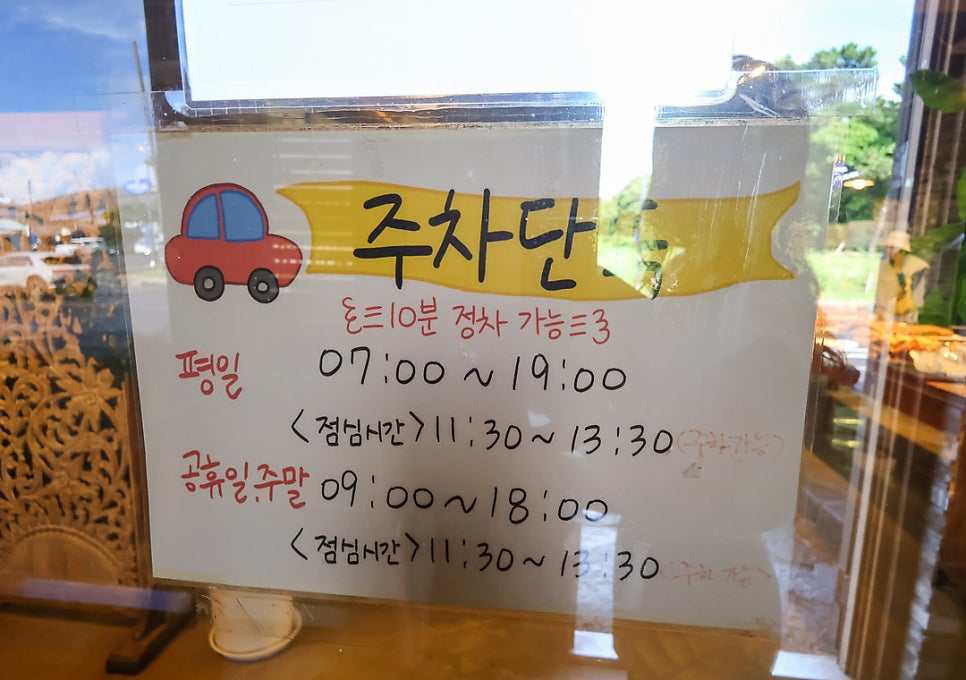 주차단속
ミミ10분 정차 가능ミ3
평일 07:00 ~ 19:00
<점심시간> 11:30 ~ 13:30 (주차가능)
공휴일,주말 09:00 ~ 18:00
<점심시간> 11:30 ~ 13:30 <주차 가능>